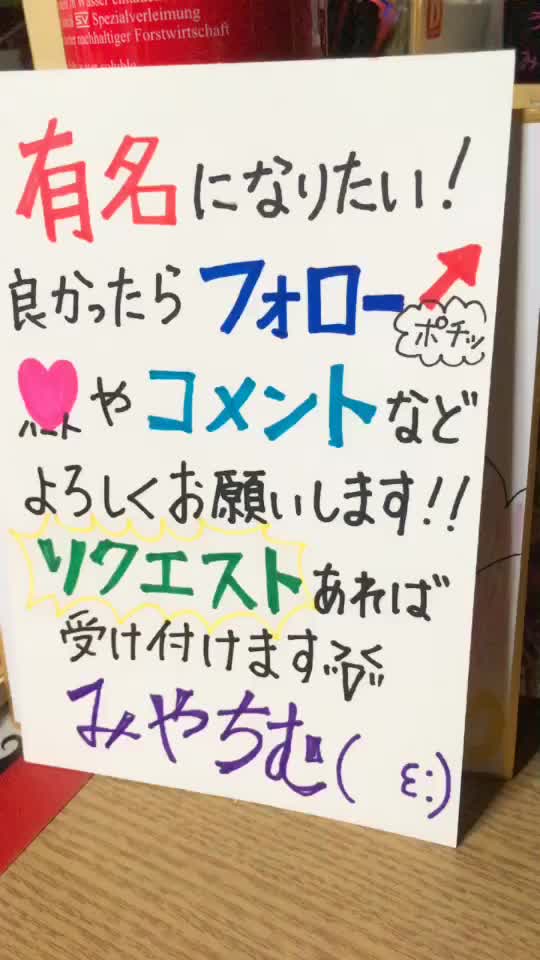 SV Spezialverleimung
nachhaltiger Forstwirtschaft
有名になりたい！
良かったらフォロー
ポチッ
やコメントなど
ハート
よろしくお願いします!!
リクエストあれば
受け付けます
みやちむ( ε:)